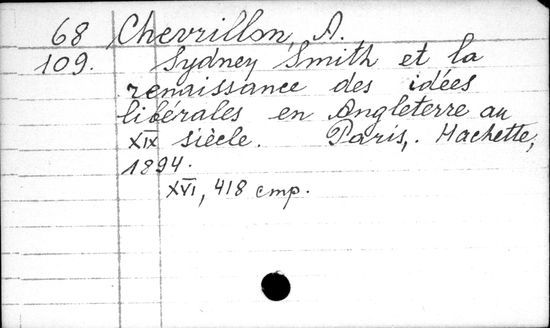 68 Chevrillon, A.
109. Sydney Smith et la
renaissance des idées
libérales en Angleterre au
XIX siècle. Paris, Hachette,
1894.
XVI, 418 cmp.